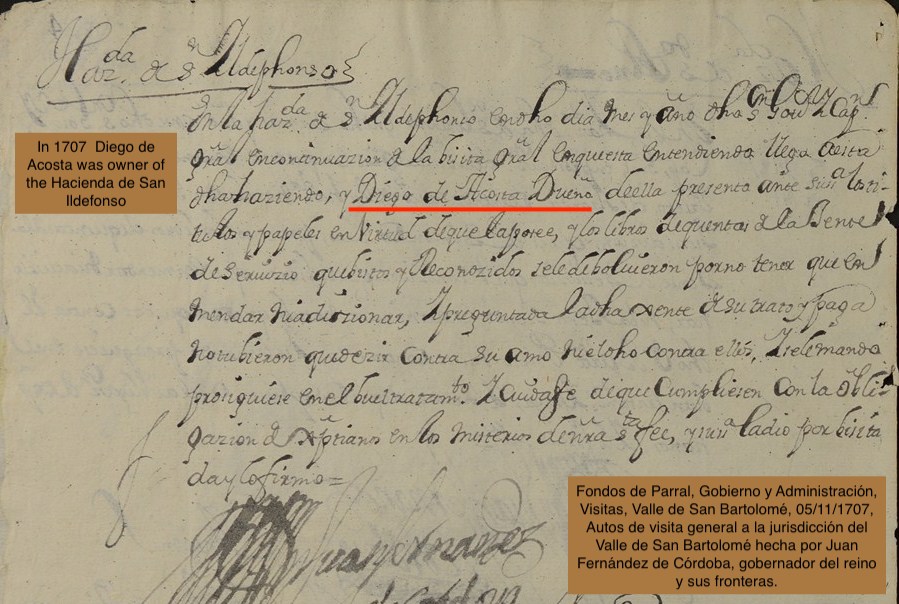 Haz.da de Sn Ildephonso
In 1707 Diego de
Acosta was owner of
the Hacienda de San
Ildefonso
En la haz.da de Sn Ildephonso en dho dia mes y año dho Sr Gour y Capn
Gral en continuazion de la bisita Gral en questa entendiendo llego a esta
dha hazienda, y Diego de Acosta Dueño de ella presento ante su sa los ti-
tulos y papeles en Virtud de que la posee, y los libros de quentas de la Jente
de seruizio que bistos y Reconozidos se le debolvieron por no tener que en
mendar ni adizzionar, Y preguntada la dha xente de su trato y paga
no tubieron que dezir contra su amo ni el dho contra ellos, Y se le mando
prosiguiese en el buen tratamto. Y cuidase de que cumpliesen con la obli-
gazion de Xptianos en los misterios de nra sta fee, y su sa la dio por bisita
da y lo firmo=
Juan Fernandez
de Cordova
Fondos de Parral, Gobierno y Administración,
Visitas, Valle de San Bartolomé, 05/11/1707,
Autos de visita general a la jurisdicción del
Valle de San Bartolomé hecha por Juan
Fernández de Córdoba, gobernador del reino
y sus fronteras.